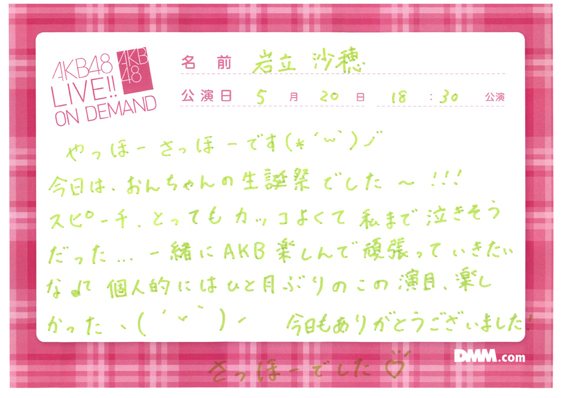 AKB48
LIVE!!
ON DEMAND
AKB
48
名前 岩立 沙穂
公演日 5月20日 18:30 公演
やっほーさっほーです(*´ー`)ノ
今日は、おんちゃんの生誕祭でした〜!!!
スピーチ、とってもカッコよくて私まで泣きそう
だった...一緒にAKB楽しんで頑張っていきたい
な♪て 個人的にはひと月ぶりのこの演目、楽し
かったヽ(´ー`)ノ 今日もありがとうございました!
DMM.com
さっほーでした♡